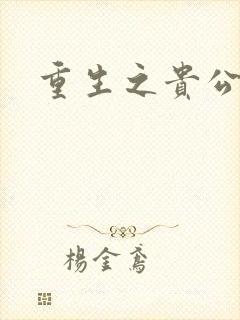 重生之貴公
楊金鳶